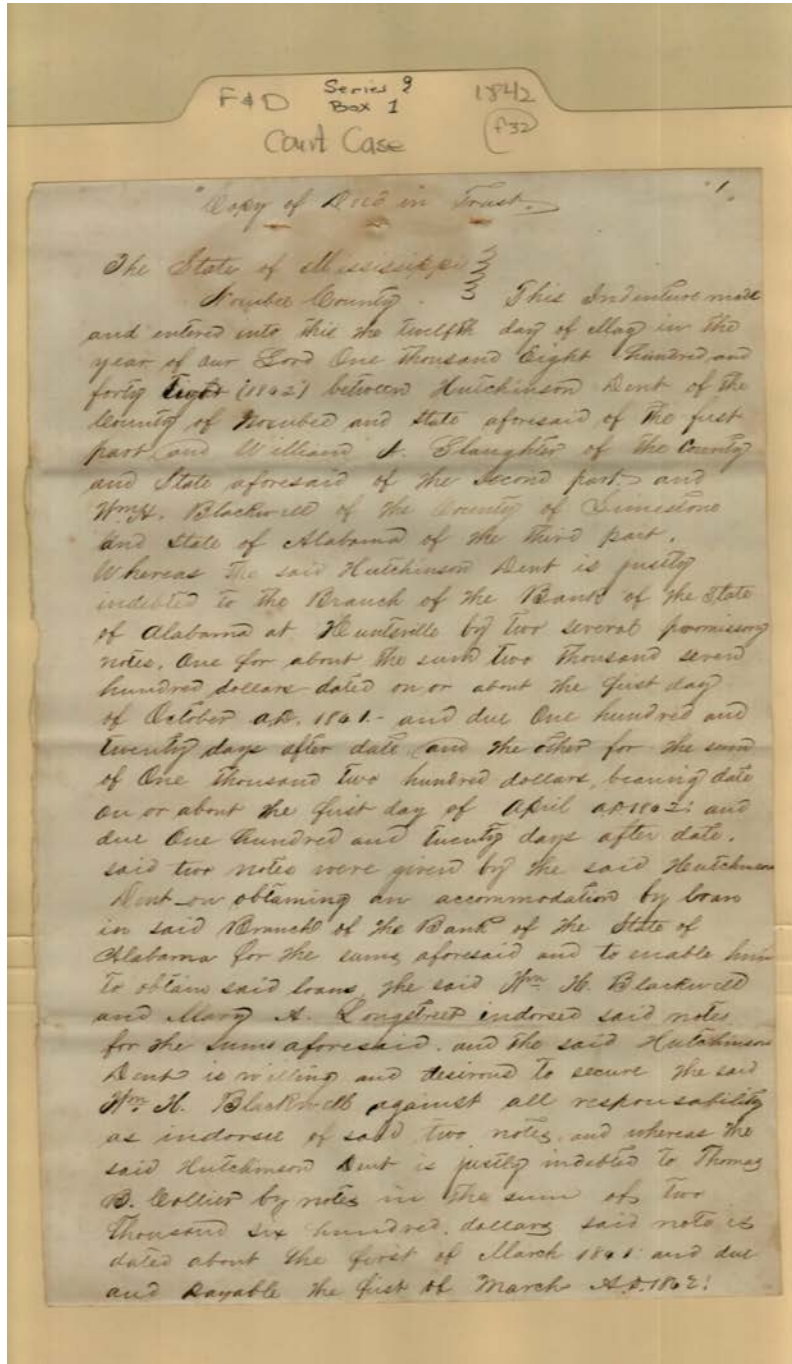 F&D Series 9 1842
Box 1 f32
Court Case
"Copy of Deed in Trust. "1.
The State of Mississippi
Noxubee County. This Indenture made
and entered into this the twelfth day of May in the
year of our Lord One thousand Eight hundred and
forty (1842) between Hutchinson Dent of the
County of Noxubee and State aforesaid of the first
part and William A. Slaughter of the County
and State aforesaid of the second part and
Wm H. Blackwell of the County of Limestone
and State of Alabama of the third part.
Whereas the said Hutchinson Dent is justly
indebted to the Branch of the Bank of the State
of Alabama at Huntsville by two several promissory
notes, One for about the sum two thousand seven
hundred dollars dated on or about the first day
of October A.D. 1841 - and due One hundred and
twenty days after date and the other for the sum
of One thousand two hundred dollars, bearing date
on or about the first day of April AD 1842 and
due One hundred and twenty days after date.
said two notes were given by the said Hutchinson
Dent on obtaining an accommodation by loan
in said Branch of the Bank of the State of
Alabama for the sums aforesaid and to enable him
to obtain said loans, the said Wm H. Blackwell
and Mary A. Longstreet indorsed said notes
for the sums aforesaid. and the said Hutchinson
Dent is willing and desirous to secure the said
Wm H. Blackwell against all responsability
as indorsee of said two notes, and whereas the
said Hutchinson Dent is justly indebted to Thomas
B. Collier by notes in the sum of two
thousand six hundred. dollars said note is
dated about the first of March 1841 and due
and payable the first of March A.D. 1842!